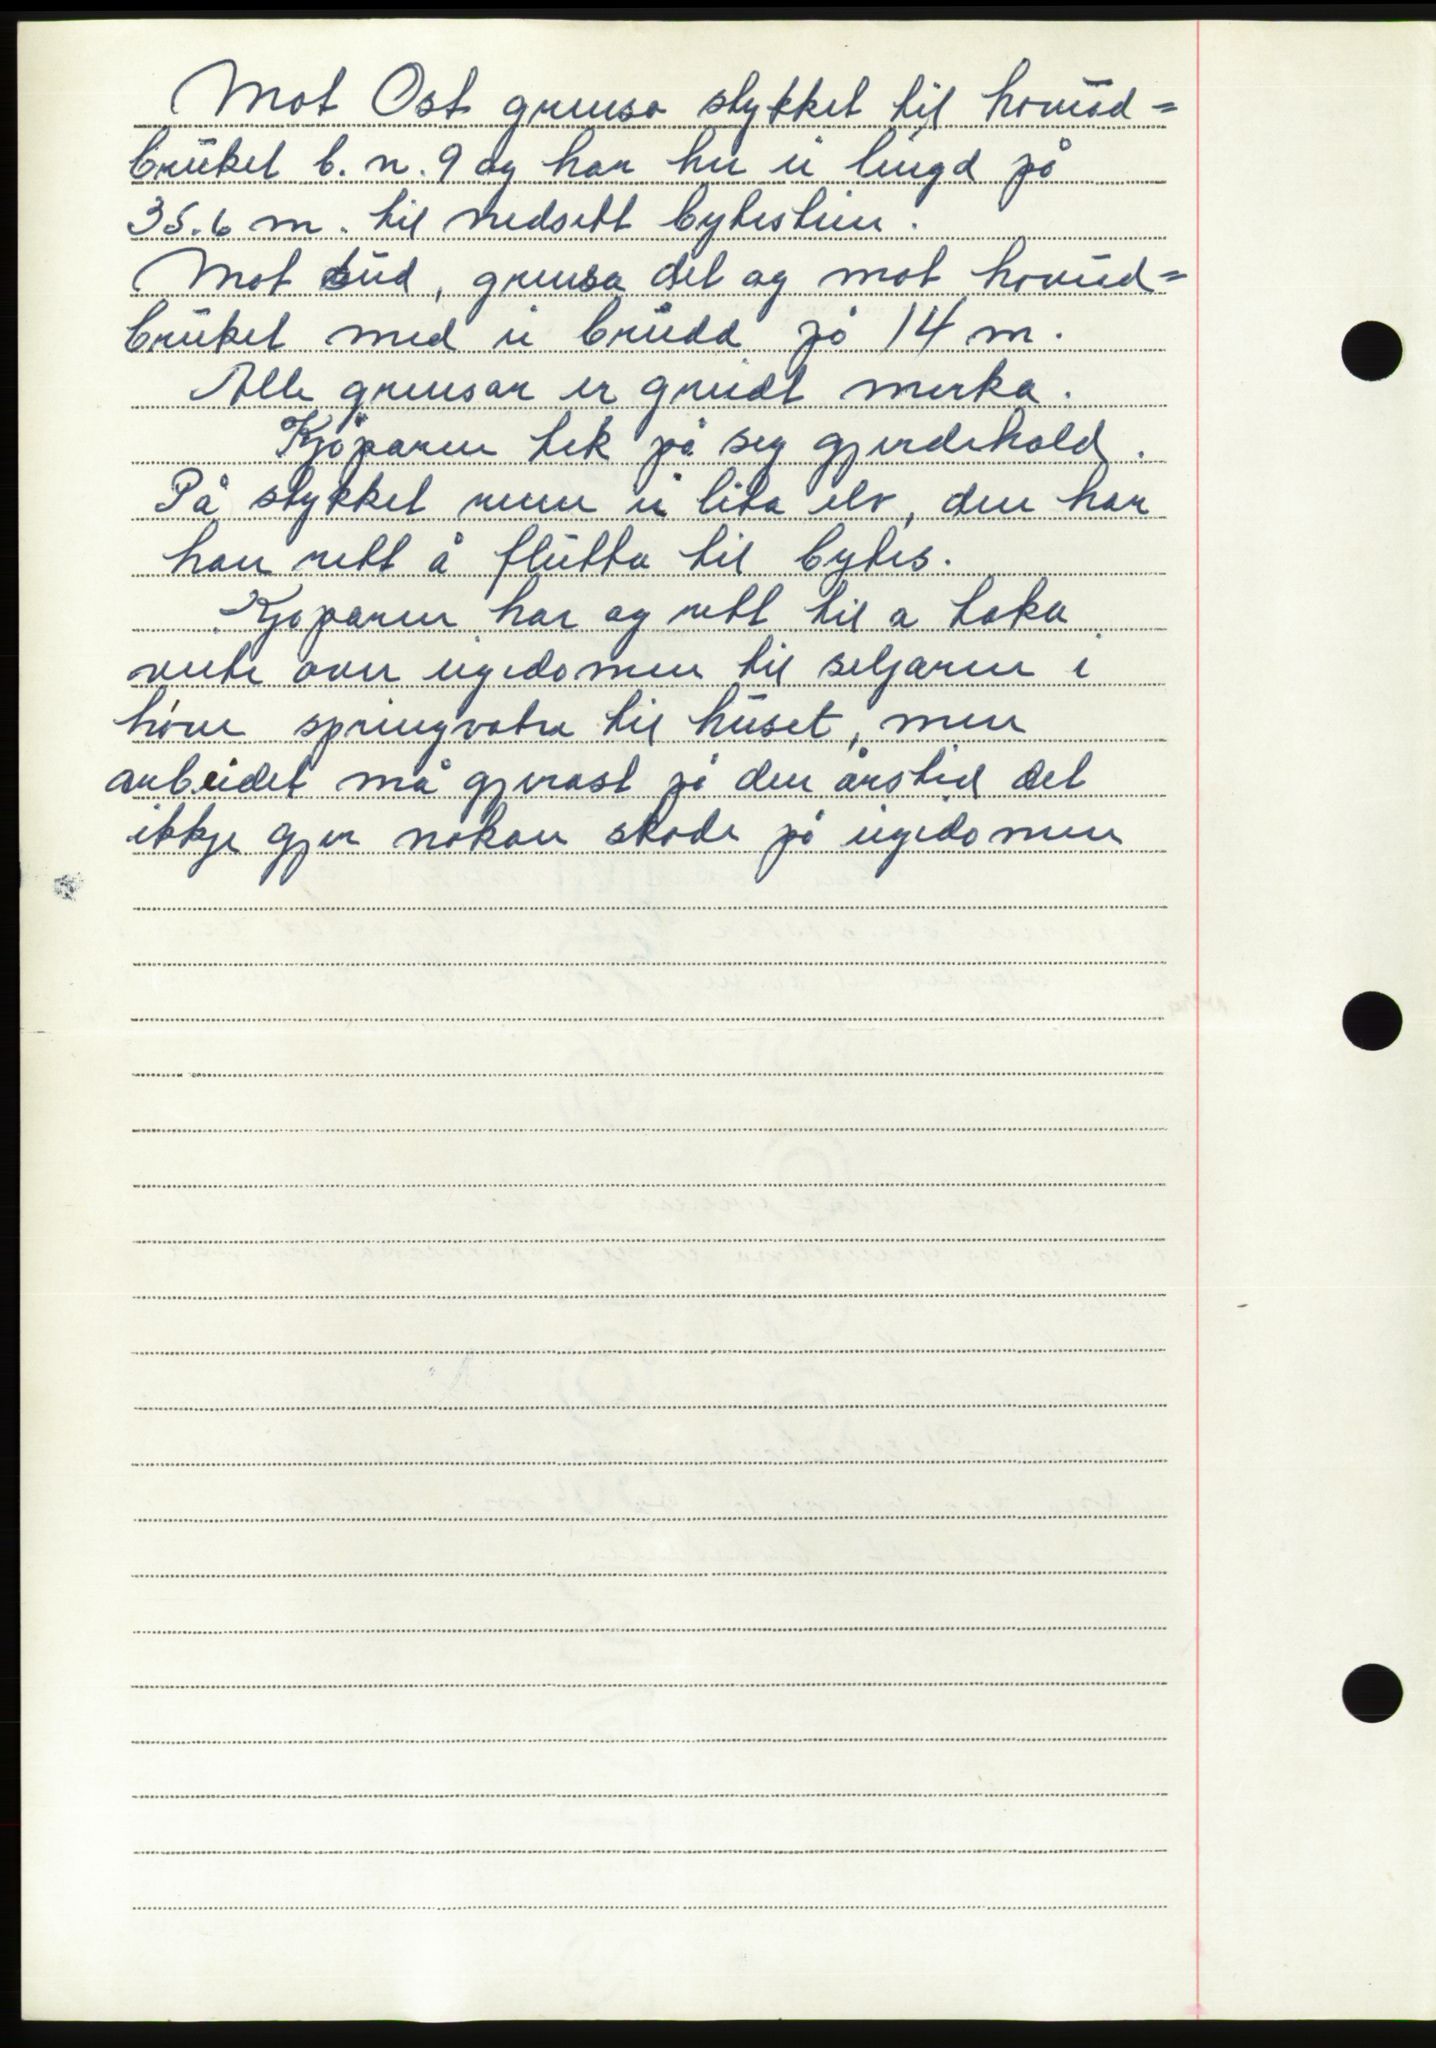 Mot Ost grensa stykket til hovud=
bruket b.n. 9 og har her ei lengd på
35.6 m. til nedsett bytestein.
Mot Sud, grensa det og mot hovud=
bruket med ei breidd på 14 m.
Alle grensar er greidt merka.
Kjöparen tek på seg gjerdehald.
På stykket renn ei lita elv, den har
han rett å flutta til bytes.
Kjoparen har og rett til a taka
veite over eigedomen til seljaren i
höve springvatn til huset, men
arbeidet må gjerast på den årstid det
ikkje gjer nokon skade på eigedomen